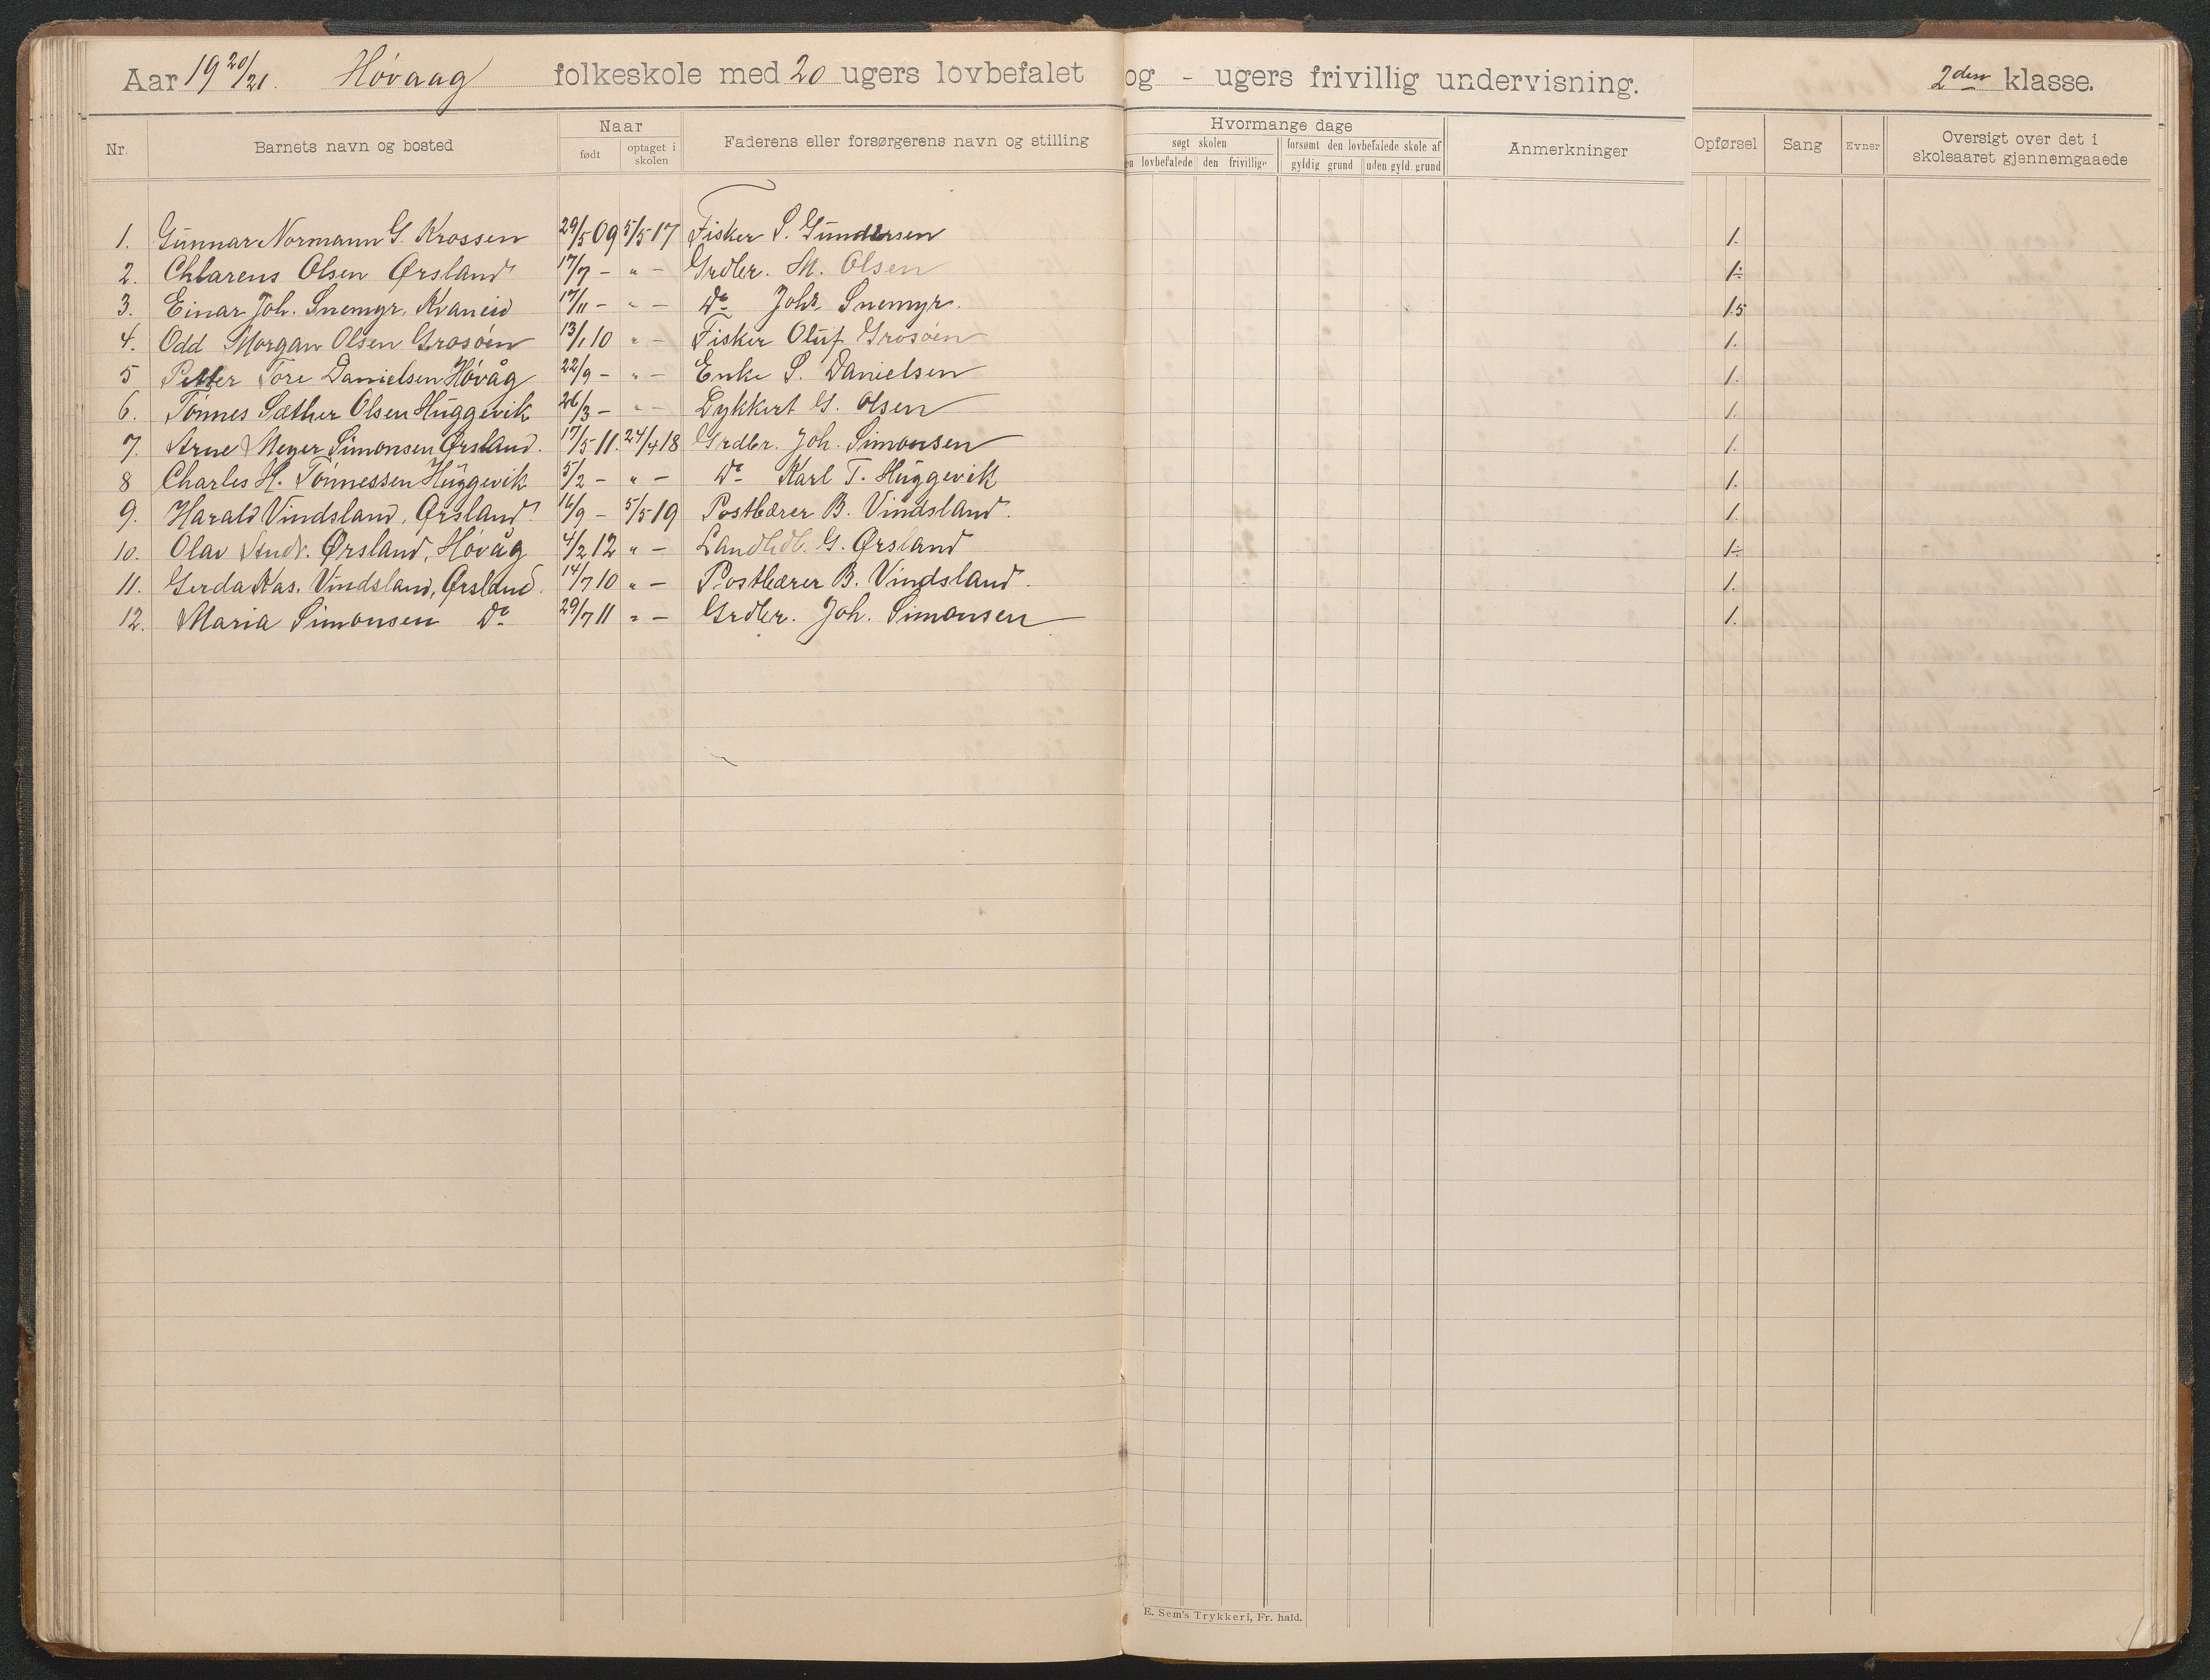 Aar 19 20/21. Høvaag folkeskole med 20 ugers lovbefalet og - ugers frivillig undervisning. 2den klasse.
Nr. Barnets navn og bosted Naar født optaget i skolen Faderens eller forsørgerens navn og stilling Hvormange dage søgt skolen en lovbefalede den frivillige forsømt den lovbefalede skole af gyldig grund uden gyld. grund Anmerkninger Opførsel Sang Evner Oversigt over det i skoleaaret gjennemgaaede
1. Gunnar Normann G. Krossen 29/5 09 5/5 17 Fisker S. Gundersen 1.
2. Chlarens Olsen Ørsland 17/7 - " - Grdbr. M. Olsen 1÷
3. Einar Joh. Snemyr, Kvaneid 17/11 - " - Do Johs. Snemyr. 1.5
4. Odd Morgan Olsen Grosøen 13/1 10 " - Fisker Oluf Grosøen 1.
5 Petter Tore Danielsen Høvåg 22/9 - " - Enke S. Danielsen 1.
6. Tønnes Sæther Olsen Huggevik 26/3 - " - Dykkert G. Olsen 1.
7. Arne Meyer Simonsen Ørsland. 17/5 11. 24/4 18 Grdbr. Joh. Simonsen 1.
8 Charles H. Tønnessen Huggevik 5/2 - " - Do Karl T. Huggevik 1.
9. Harald Vindsland, Ørsland. 16/9 - 5/5 19 Postbærer B. Vindsland. 1.
10. Olav Andr. Ørsland, Høvåg 4/2 12 " - Landhdl. G. Ørsland 1÷
11. Gerda Kas. Vindsland, Ørsland. 14/7 10 " - Postbærer B. Vindsland. 1.
12. Maria Simonsen Do 29/7 11 " - Grdbr. Joh. Simonsen 1.
E. Sem's Trykkeri, Fr. hald.